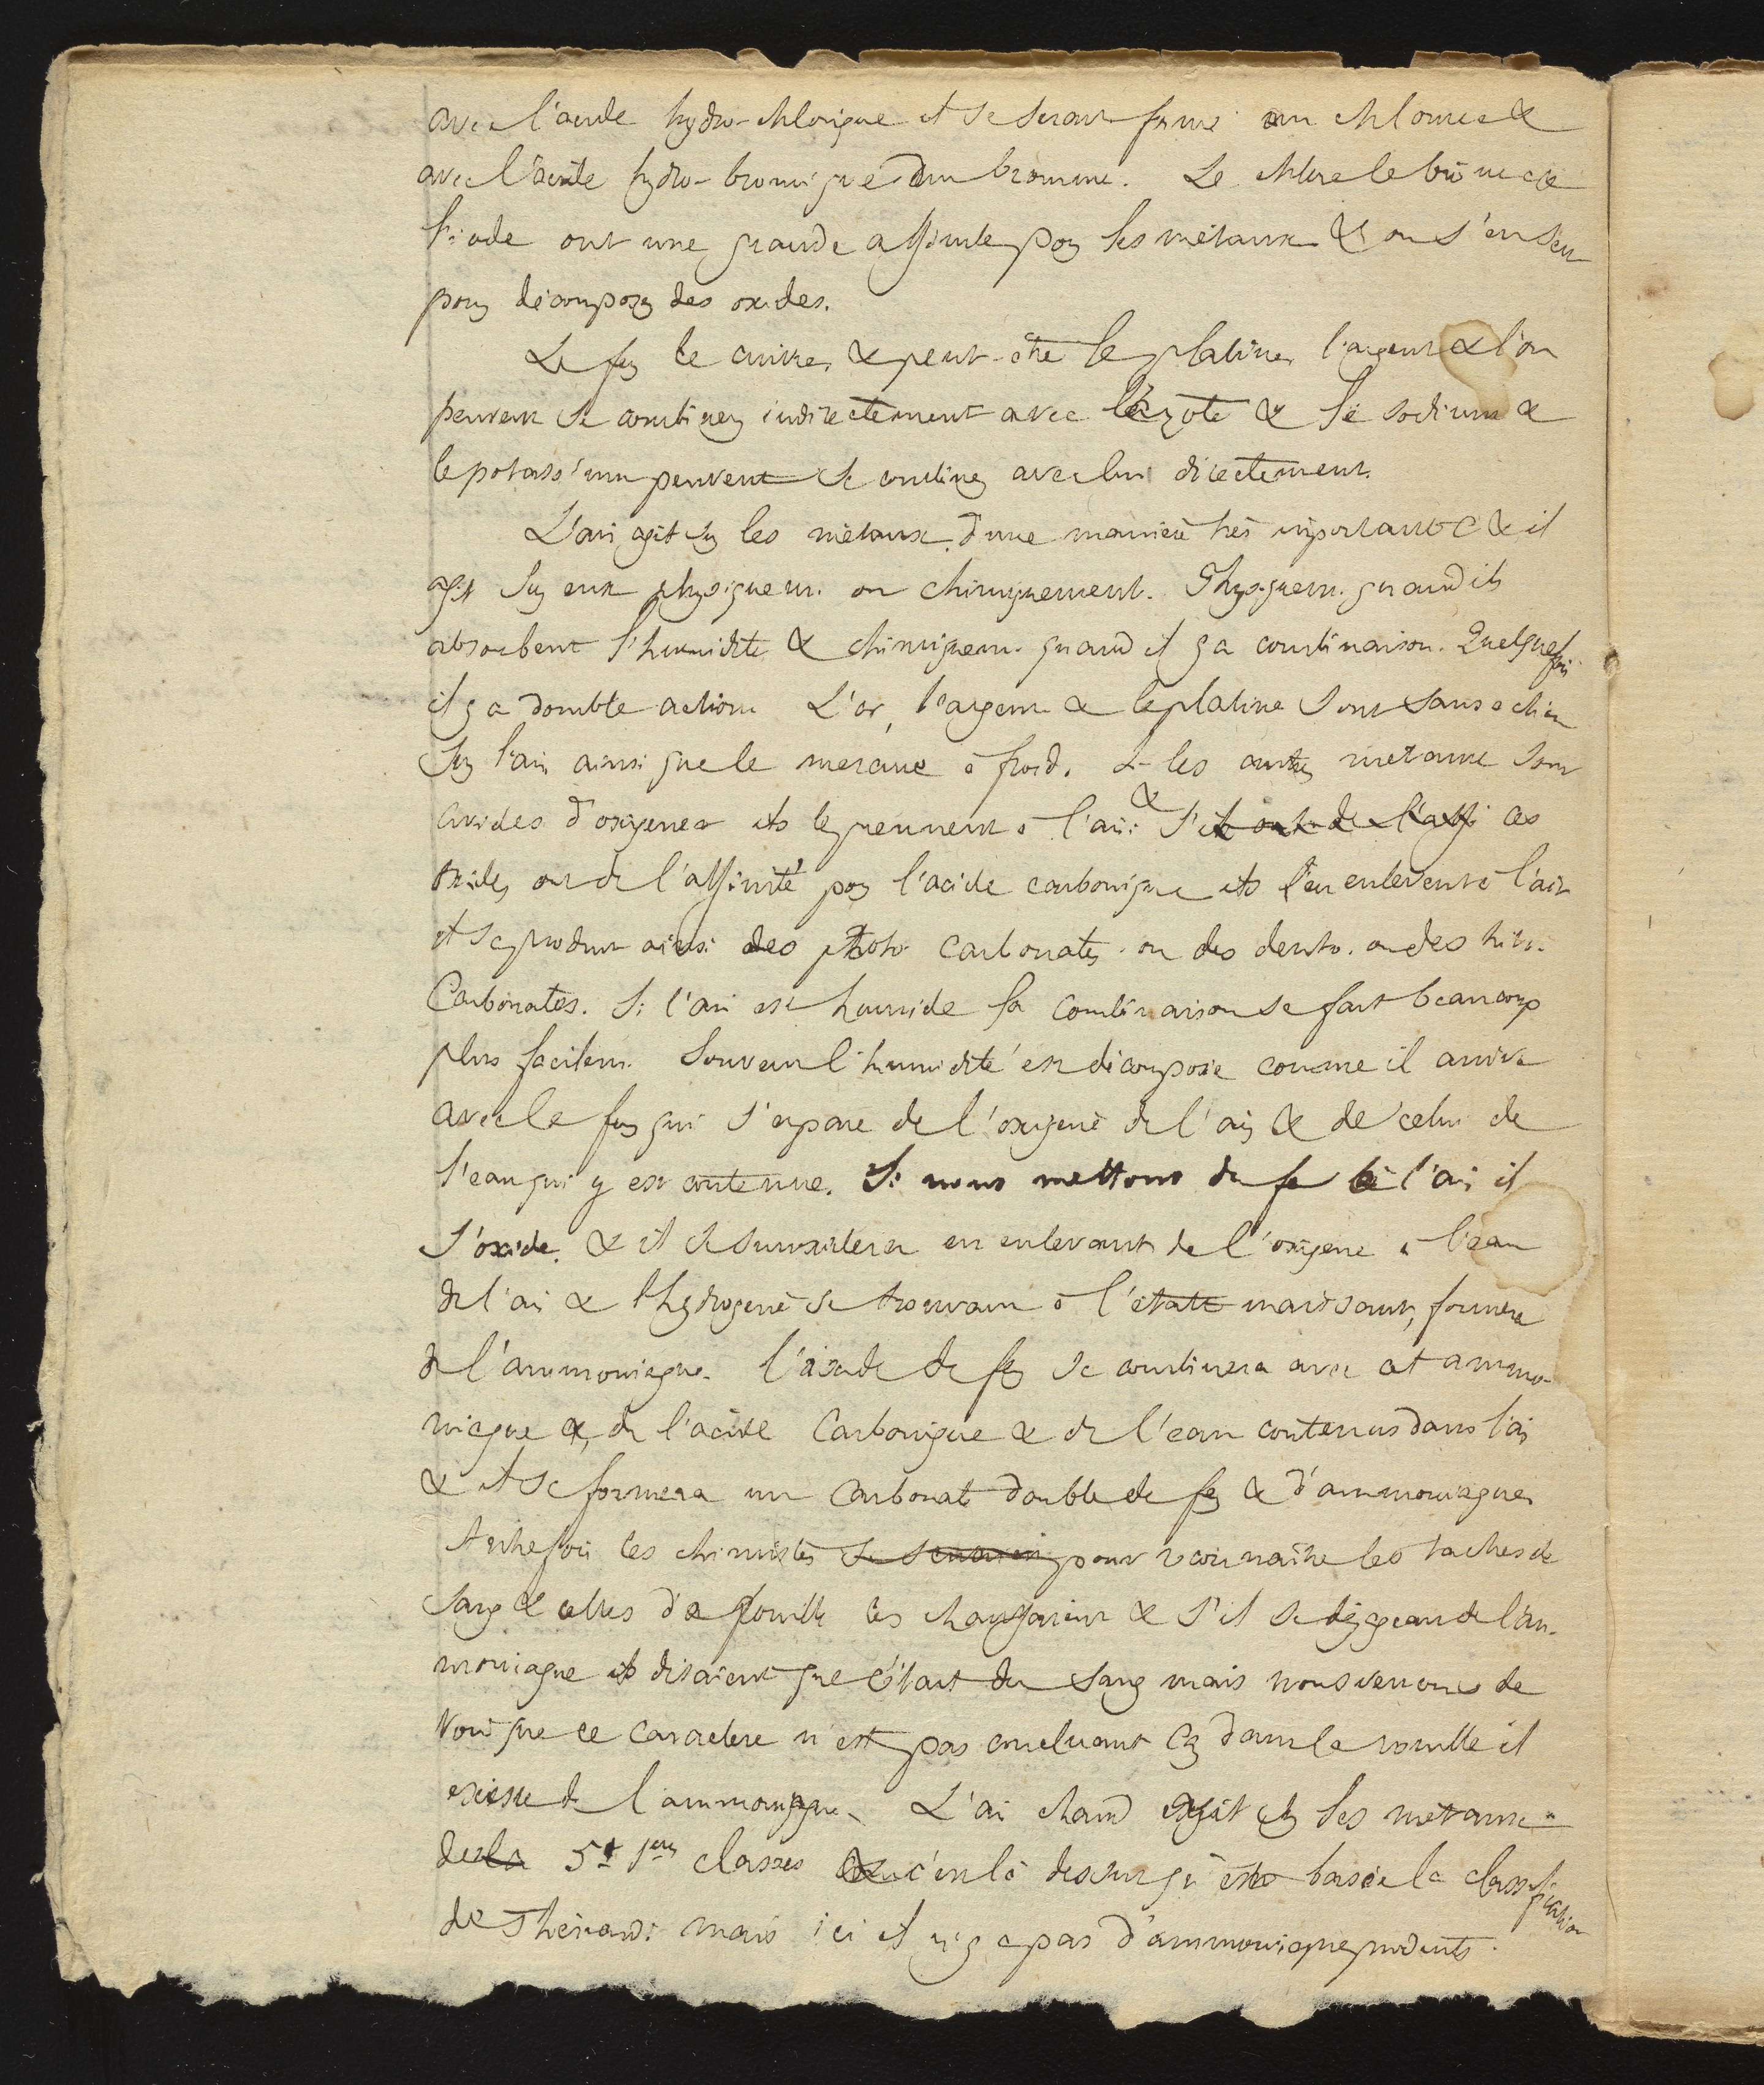 avec l'acide hydro-chlorique il se serait formé un chlorure &
avec l'acide hydro-bromique d'un bromure. Le chlore le brôme &
l'iode ont une grande affinité pour les métaux & on s'en sert
pour décomposer des oxides.
Le fer le cuivre, & peut-être le platine, l'argent & l'or
peuvent se combiner indirectement avec l'azote & le sodium &
le potassium peuvent se combiner avec lui directement.
L'air agit sur les métaux d'une manière très importante & il
agit sur eux physiquem. ou chimiquement. Physiquem. quand ils
absorbent l'humidité & chimiquem. quand il y a combinaison. Quelquefois
il y a double action. L'or, l'argent & le platine sont sans action
sur l'air ainsi que le mercure à froid. Si les autres métaux sont
avides d'oxigene ils le prennent à l'air & s'il ont de l'affi ces
oxides ont de l'affinité pour l'acide carbonique ils l'en enlevent à l'air
il se produit ainsi des proto carbonates ou des deuto. ou des trito.
Carbonates. Si l'air est humide la combinaison se fait beaucoup
plus facilem. Souvent l'humidité est décomposée comme il arrive
avec le fer qui s'empare de l'oxigene de l'air & de celui de
l'eau qui y est contenue. Si nous mettons du fer à l'air il
s'oxide. & il se suroxidera en enlevant de l'oxigene à l'eau
de l'air & l'hydrogenè se trouvant à l'état naissant, formera
de l'ammoniaque. l'oxide de fer se combinera avec cet ammo-
niaque & de l'acide Carbonique & de l'eau contenus dans l'air
& il se formera un Carbonate double de fer & d'ammoniaque
Autrefois les chimistes se servaient pour reconnaître les taches de
sang & celles de rouille les chauffaient & s'il se dégageait de l'am-
moniaque ils disaient que c'était du sang mais nous venons de
voir que ce caractere n'est pas concluant car dans la rouille il
existe de l'ammoniaque. L'air chaud agit sur les métaux
des la 5 1ères classes & c'est là dessus qu'est basée la classification
de Thénard. mais ici il n'y a pas d'ammoniaque produits.